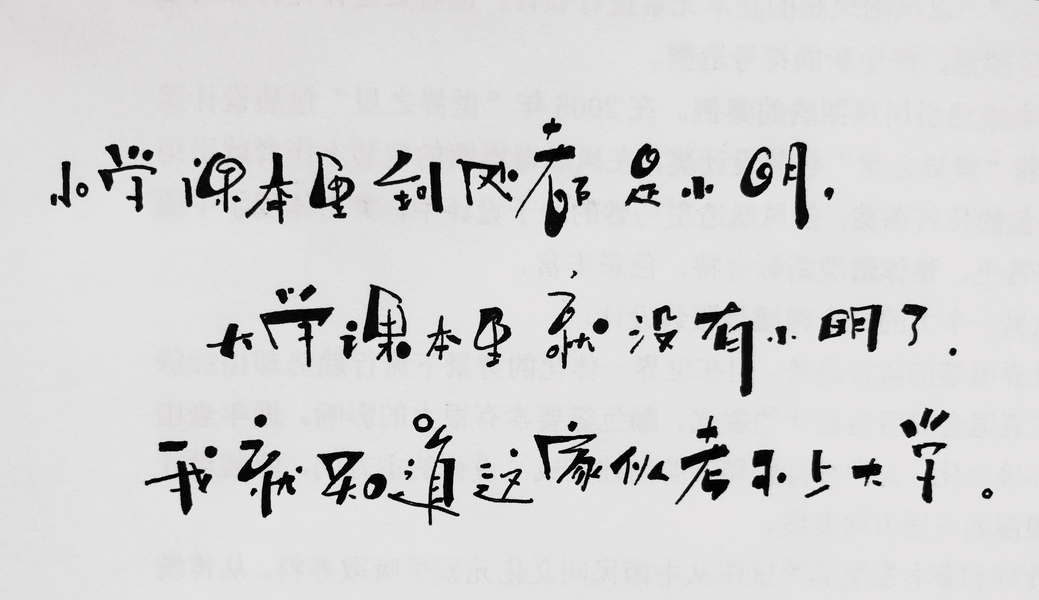 小学课本里到处都是小明,
大学课本里就没有小明了.
我就知道这家伙考不上大学。